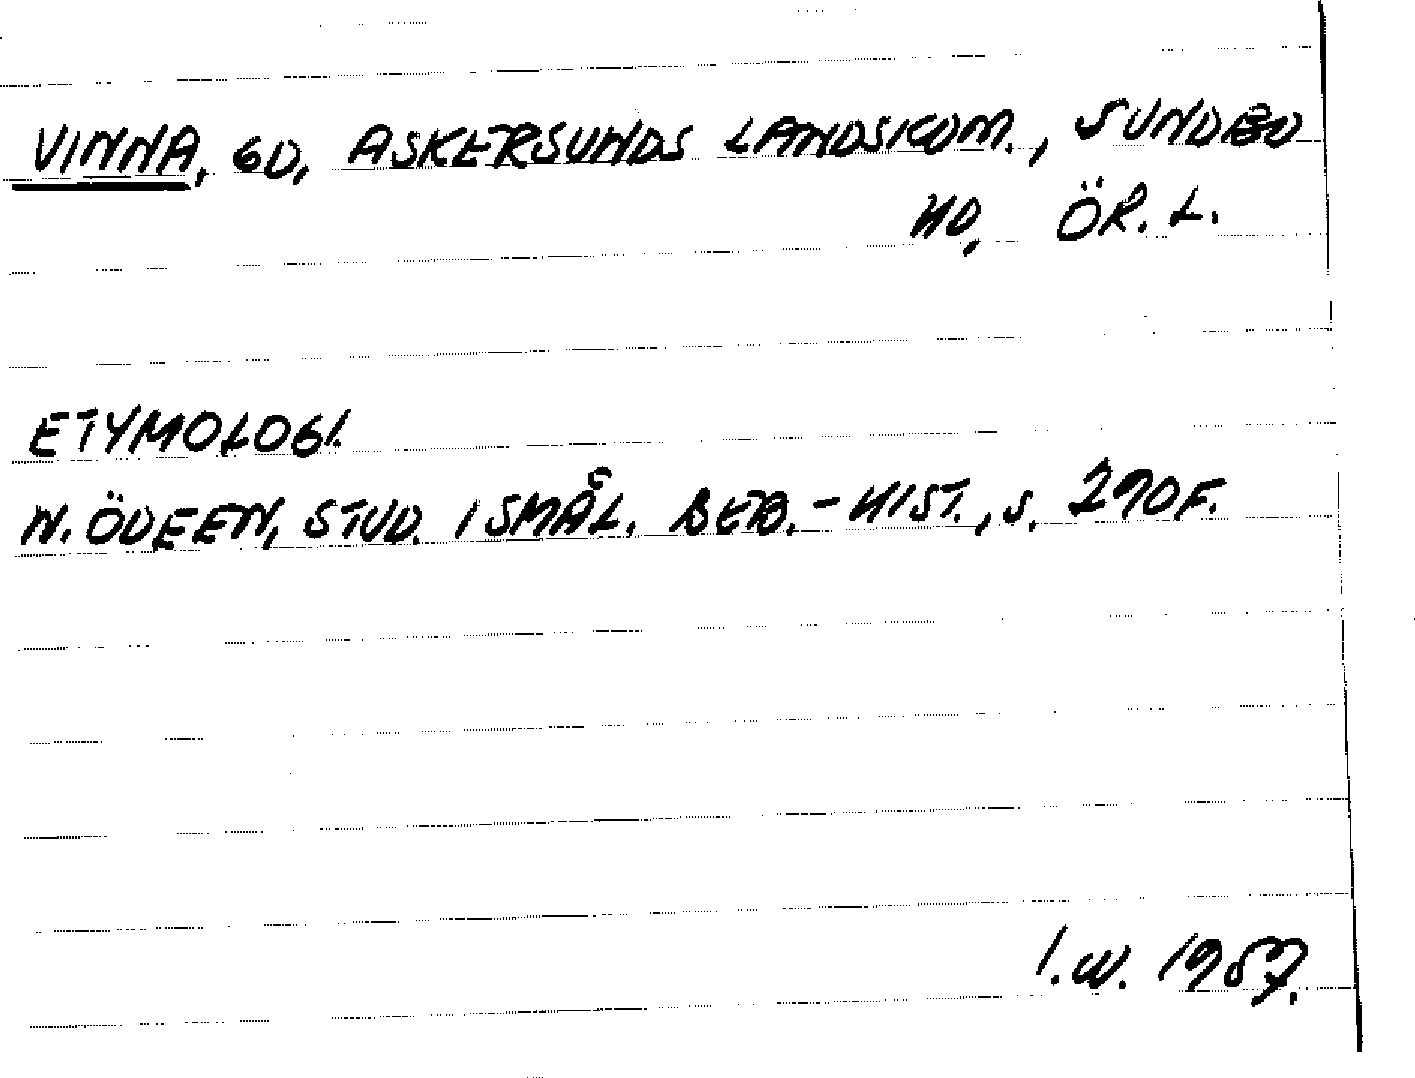 VINNA, GD, ASKERSUNDS LANDSKOM., SUNDBO
HD, ÖR. L.
ETYMOLOGI.
N. ÖDEEN, STUD. I SMÅL. BEB.-HIST., S. 290F.
I.W. 1957.